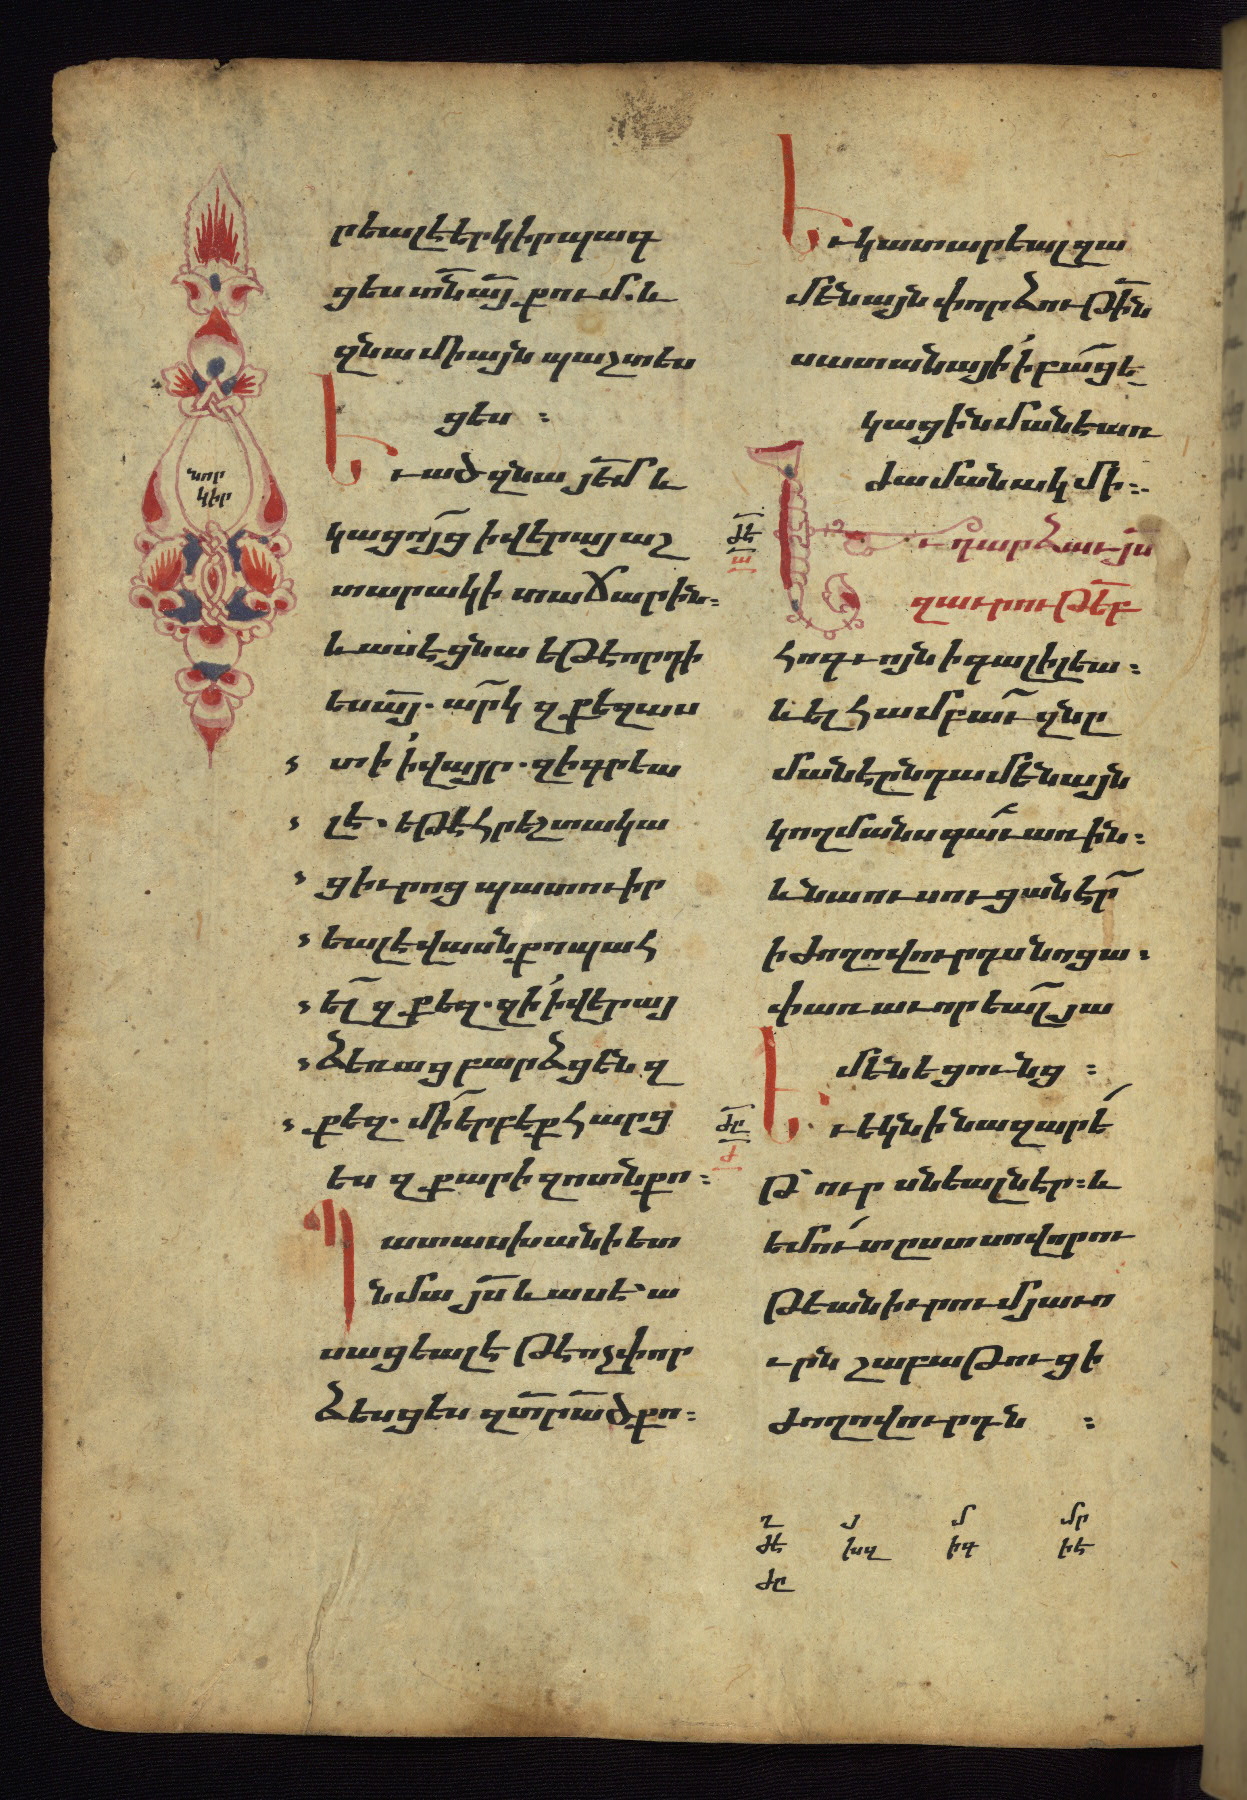 րեալ է երկիր պագ
ցես տն̅ այ̅ քում. և
զնա միայն պաշտես
ցես ։
Եւ ած զնա յե̅մ և
կացոյց ի վերայ աշ
տարակի տաճարին։
և ասէ ցնա եթէ որդի
ես այ̅. ա̅րկ զքեզ աս
տի ի վայր. զի գրեա
լ է. եթէ հրեշտակա
ցիւրոց պատուիր
եալ է վասն քո պահ
ել̅ զքեզ. զի ի վերայ
ձեռաց բարձցեն զ
քեզ. մի̅ երբեք հարց
ես զքարի զոտն քո։
Պատասխանի ետ
նմա յս̅ և ասէ՝ ա
սացեալ է թէ ոչ փոր
ձեսցես զտր̅ ա̅ծ քո։
նոր
կիր
Եւ կատարեալ զա
մենայն փորձութի̅ն
սատանայի ի բա̅ց ե
կաց ի նմանէ առ
ժամանակ մի։
ԺԷ
ա
Եւ դարձաւ յս
զաւրութե̅բ
հոգւոյն ի գալիլեա։
և ել համբա̅ւ զնը
մանէ ընդ ամենայն
կողմանս գաւառին։
և նա ուսուցանէր̅
ի ժողովուրդս նոցա։
փառաւորեալ̅ յա
մենեցունց ։
ԺԸ
Ժ
Եւ եկն ի նազարե՛
թ՝ ուր սնեալն էր։ և
եմուտ ըստ սովորու
թեան իւրում յաւո
ւրն շաբաթուց ի
ժողովուրդն ։
ղ յ մ մր
ԺԷ խզ իգ իե
ԺԸ